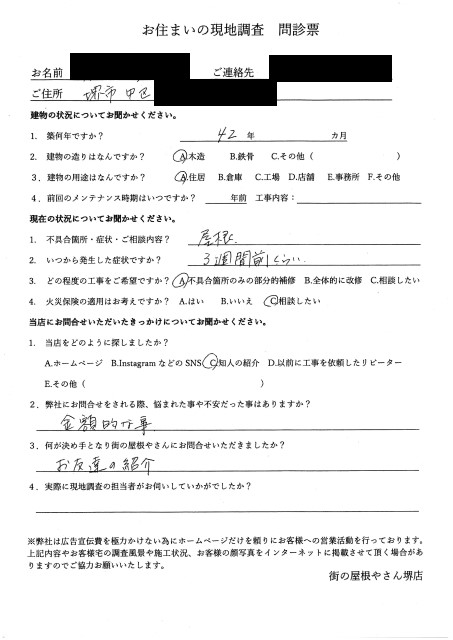 お住まいの現地調査　問診票
お名前　　ご連絡先
ご住所　堺市中区
建物の状況についてお聞かせください。
1. 築何年ですか？　42 年　カ月
2. 建物の造りはなんですか？　A.木造　B.鉄骨　C.その他（　）
3．建物の用途はなんですか？　A.住居　B.倉庫　C.工場　D.店舗　E.事務所　F.その他
4．前回のメンテナンス時期はいつですか？　年前　工事内容：
現在の状況についてお聞かせください。
1. 不具合箇所・症状・ご相談内容？　屋根
2. いつから発生した症状ですか？　3週間前くらい
3. どの程度の工事をご希望ですか？　A.不具合箇所のみの部分的補修　B.全体的に改修　C.相談したい
4. 火災保険の適用はお考えですか？　A.はい　B.いいえ　C.相談したい
当店にお問合せいただいたきっかけについてお聞かせください。
1. 当店をどのように探しましたか？
A.ホームページ　B.Instagram などの SNS　C.知人の紹介　D.以前に工事を依頼したリピーター
E.その他（　）
2．弊社にお問合せをされる際、悩まれた事や不安だった事はありますか？
金額的な事
3．何が決め手となり街の屋根やさんにお問合せいただきましたか？
お友達の紹介
4．実際に現地調査の担当者がお伺いしていかがでしたか？
※弊社は広告宣伝費を極力かけない為にホームページだけを頼りにお客様への営業活動を行っております。
上記内容やお客様宅の調査風景や施工状況、お客様の顔写真をインターネットに掲載させて頂く場合があ
りますのでご協力お願いいたします。
街の屋根やさん堺店